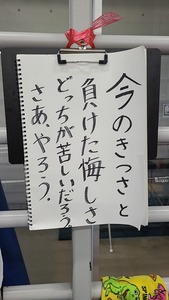 今のきつさと
負けた悔しさ
どっちが苦しいだろう
さあ、やろう.